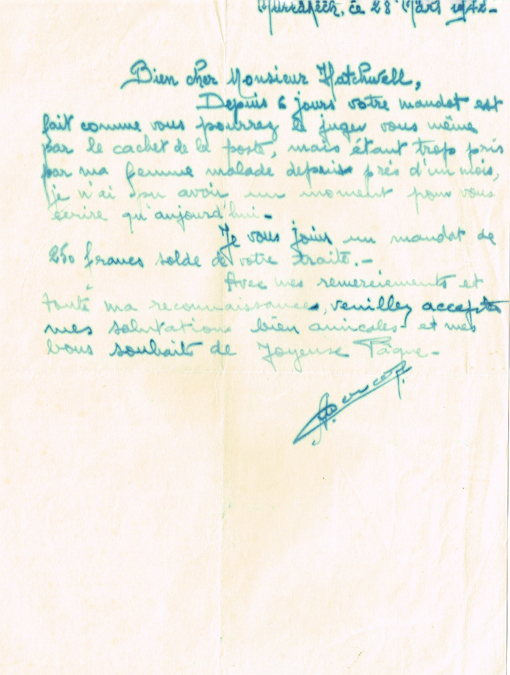 Marrakech, ce 28 Mars 1942-
Bien cher Monsieur Hatchwell,
Depuis 6 jours votre mandat est
fait comme vous pourrez le juger vous même
par le cachet de la poste, mais étant trop pris
par ma femme malade depuis près d'un mois,
je n'ai pu avoir un moment pour vous
écrire qu'aujourd'hui-
Je vous joins un mandat de
250 francs solde de votre traite.-
Avec mes remerciements et
toute ma reconnaissance, veuillez accepter
mes salutations bien amicales et mes
bons souhaits de Joyeuse Pâque-